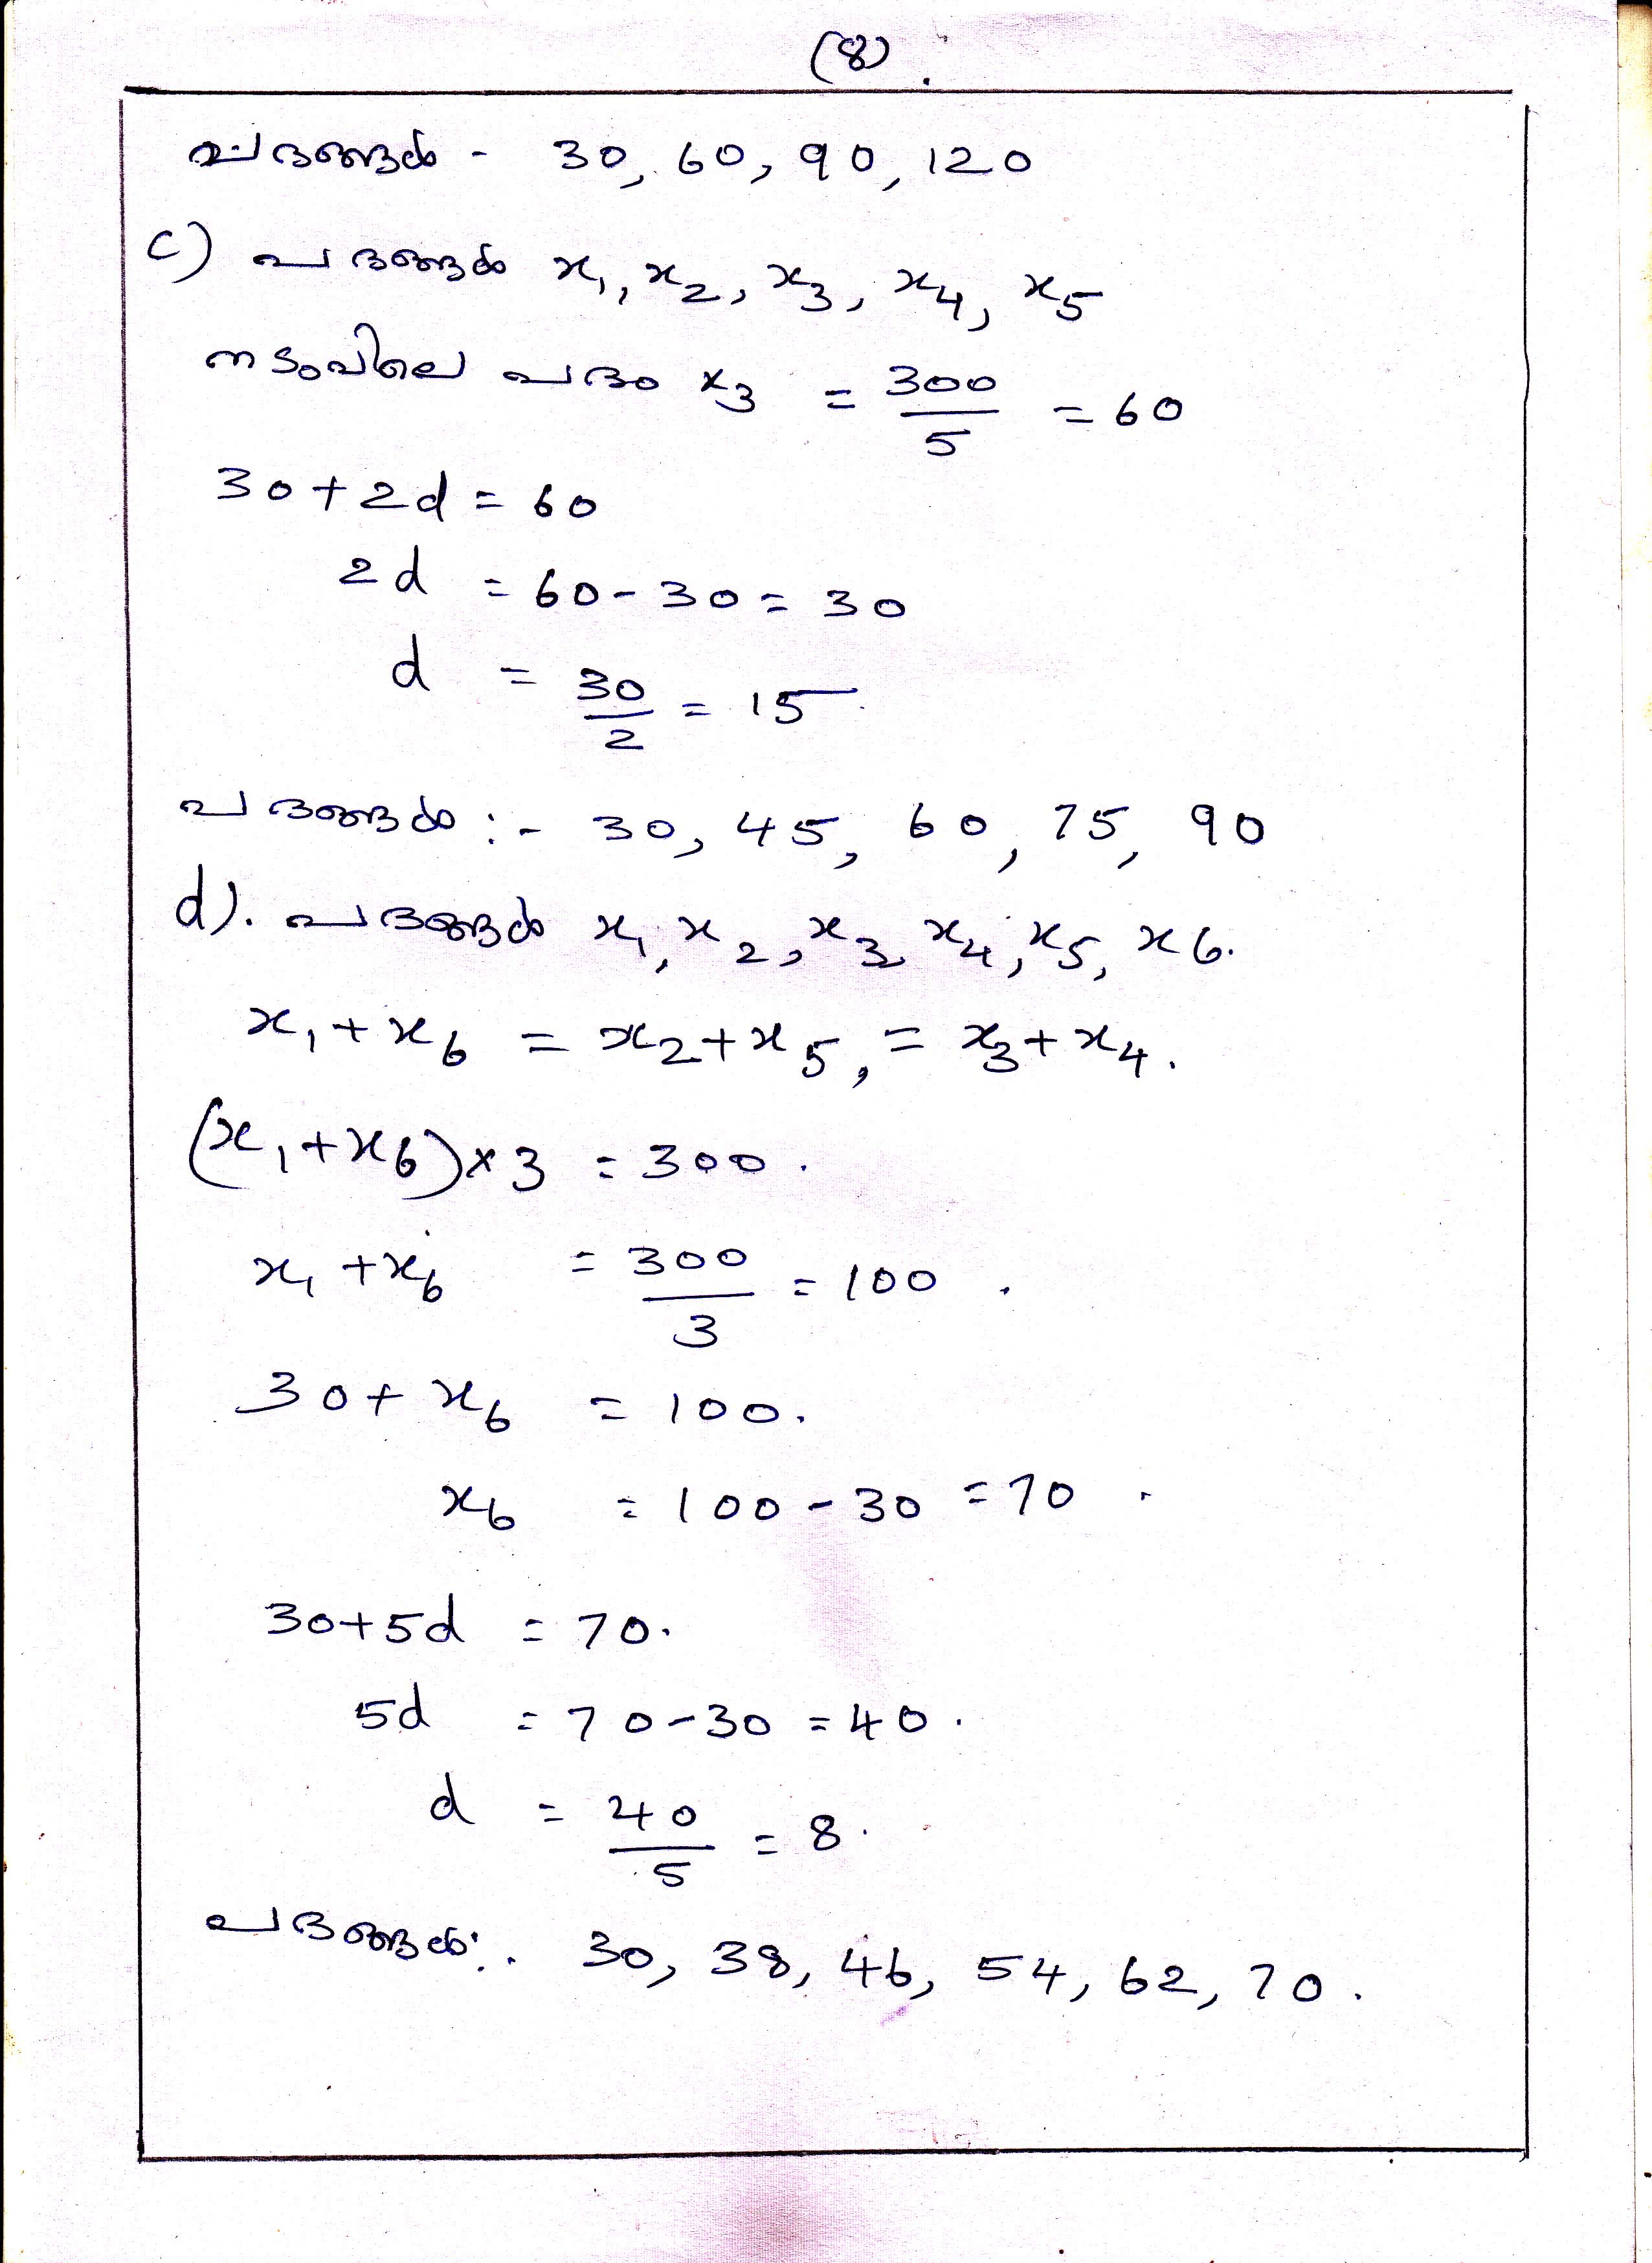 (8).
പദങ്ങൾ - 30, 60, 90, 120
c) പദങ്ങൾ x₁, x₂, x₃, x₄, x₅
നടുവിലെ പദം x₃ = 300/5 = 60
30+2d = 60
2d = 60-30 = 30
d = 30/2 = 15
പദങ്ങൾ :- 30, 45, 60, 75, 90
d). പദങ്ങൾ x₁, x₂, x₃ x₄, x₅, x₆.
x₁+x₆ = x₂+x₅, = x₃+x₄.
(x₁+x₆)×3 = 300.
x₁+x₆ = 300/3 = 100.
30+x₆ = 100.
x₆ = 100-30 = 70.
30+5d = 70.
5d = 70-30 = 40.
d = 40/5 = 8.
പദങ്ങൾ:. 30, 38, 46, 54, 62, 70.